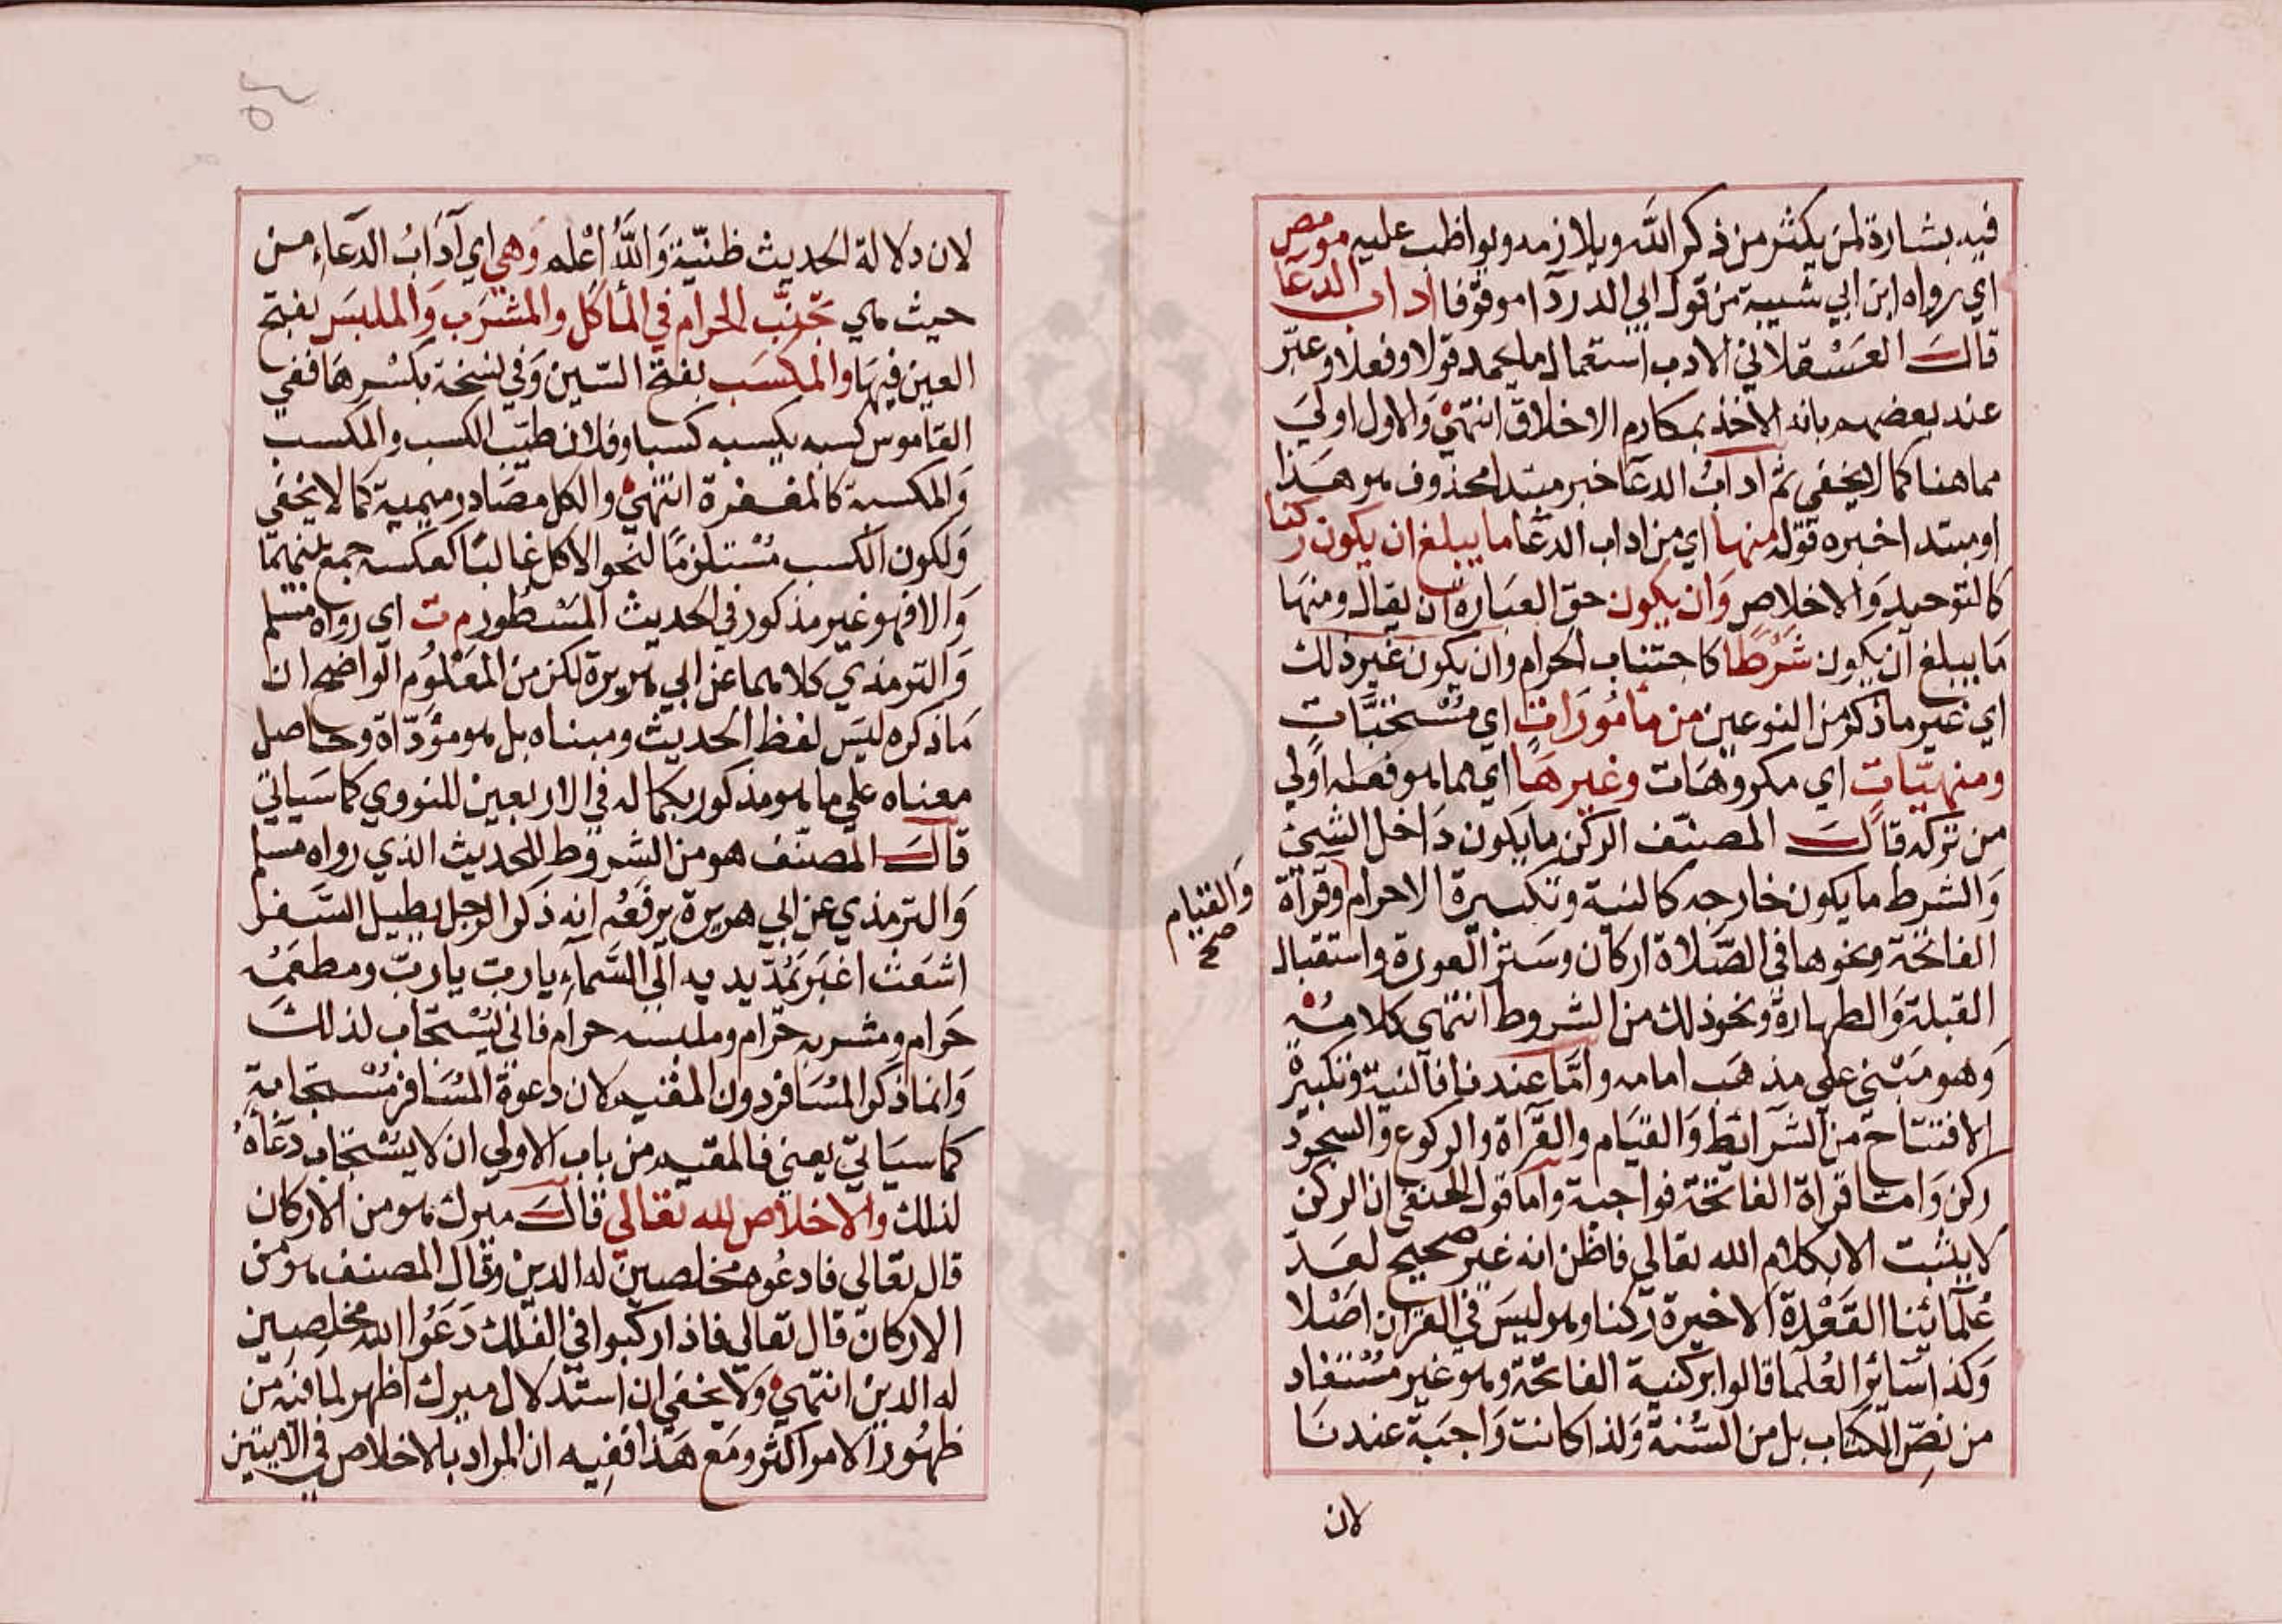 فيه بشارة لمن يكثر من ذكر الله ويلازمه ويواظب عليه مو مص
اي رواه ابن ابي شيبة من قول ابي الدردآ موقوفا اداب الدعا
قال العسقلاني الادب استعمال ما يحمد قولا وفعلا وعبّر
عند بعضهم بانه الاخذ بمكارم الاخلاق انتهى والاول اولى
مما هنا كما لا يخفى ثم اداب الدعآ خبر مبتدا محذوف هو هذا
او مبتدا خبره قوله منها اي من اداب الدعا ما يبلغ ان يكون ركنا
كالتوحيد والاخلاص وان يكون حق العبارة ان يقال ومنها
ما يبلغ ان يكون شرطا كاجتناب الحرام وان يكون غير ذلك
اي غير ما ذكر من النوعين من مأمورات اي مستحبّات
ومنهيّات اي مكروهات وغيرها اي مما هو فعله اولى
من تركه قال المصنّف الركن ما يكون داخل الشيئ
والشرط ما يكون خارجه كالنية وتكبيرة الاحرام وقرآة
والقيام صح
الفاتحة ونحوها في الصّلاة اركان وستر العورة واستقبال
القبلة والطهارة ونحو ذلك من الشروط انتهى كلامه
وهو مبني على مذهب امامه وامّا عندنا فالنية وتكبيرة
الافتتاح من الشرائط والقيام والقرآة والركوع والسجود
ركن وامّا قراة الفاتحة فواجبة واما قول الحنفي ان الركن
لا يثبت الا بكلام الله تعالى فاظن انه غير صحيح لعدّ
علمائنا القعدة الاخيرة ركنا وهو ليس في القران اصلا
وكذا سائر العلما قالوا بركنية الفاتحة وهو غير مستفاد
من نصّ الكتاب بل من السّنة ولذا كانت واجبة عندنا
لان
لان دلالة الحديث ظنيّة والله اعلم وهي اي آداب الدعاء من
حيث هي تجنّب الحرام في المأكل والمشرب والملبس بفتح
العين فيها والمكسب بفتح السّين وفي نسخة بكسرها ففي
القاموس كسبه يكسبه كسبا وفلان طيّب الكسب والمكسب
والمكسبة كالمغفرة انتهى والكل مصادر ميمية كما لا يخفى
ولكون الكسب مستلزما لنحو الاكل غالبا كعكسه جمع بينهما
والا فهو غير مذكور في الحديث المسطور م ت اي رواه مسلم
والترمذي كلاهما عن ابي هريرة لكن من المعلوم الواضح ان
ما ذكره ليس لفظ الحديث ومبناه بل هو مؤدّاه وحاصل
معناه على ما هو مذكور بكماله في الاربعين للنووي كما سياتي
قال المصنّف هو من الشروط للحديث الذي رواه مسلم
والترمذي عن ابي هريرة يرفعه انه ذكر الرجل يطيل السّفر
اشعث اغبر يمدّ يديه الى السّمآء يا رب يا ربّ ومطعمه
حرام ومشربه حرام وملبسه حرام فانى يستجاب لذلك
وانما ذكر المسافر دون المقيم لان دعوة المسافر مستجابة
كما سياتي يعني فالمقيم من باب الاولى ان لا يستجاب دعاه
لذلك والاخلاص لله تعالى قال ميرك هو من الاركان
قال تعالى فادعوه مخلصين له الدين وقال المصنف هو من
الاركان قال تعالى فاذا ركبوا في الفلك دعوا الله مخلصين
له الدين انتهى ولا يخفى ان استدلال ميرك اظهر لما فيه من
ظهور الامر اكثر ومع هذا ففيه ان المراد بالاخلاص في الآيتين